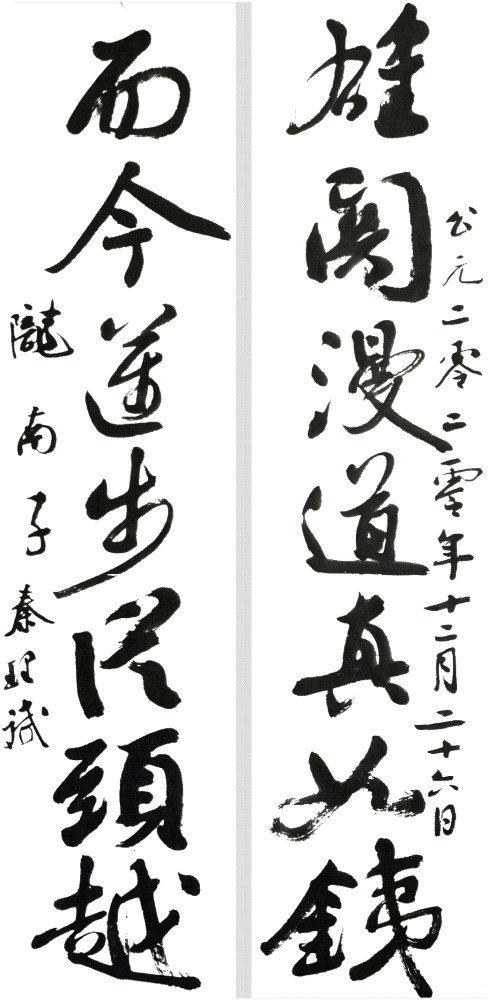 公元二零二零年十二月二十六日
雄關漫道真如銕
而今邁步從頭越
隴南子秦理